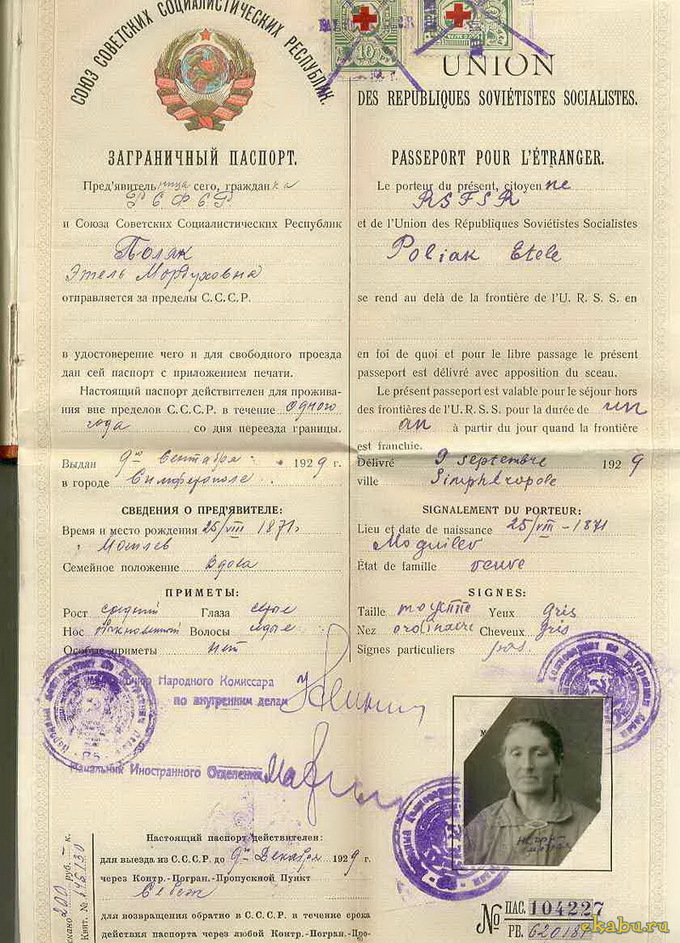 СОЮЗ СОВЕТСКИХ СОЦИАЛИСТИЧЕСКИХ РЕСПУБЛИК.
ЗАГРАНИЧНЫЙ ПАСПОРТ.
Пред'явительница сего, гражданка
РСФСР
и Союза Советских Социалистических Республик
Поляк
Этель Мордуховна
отправляется за пределы С.С.С.Р.
в удостоверение чего и для свободного проезда
дан сей паспорт с приложением печати.
Настоящий паспорт действителен для прожива-
ния вне пределов С.С.С.Р. в течение одного
года со дня переезда границы.
Выдан 9го Сентября 1929 г.
в городе Симферополе
СВЕДЕНИЯ О ПРЕД'ЯВИТЕЛЕ:
Время и место рождения 25/VIII 1871г.
Могилев
Семейное положение Вдова
ПРИМЕТЫ:
Рост средний Глаза серые
Нос Волосы седые
Особые приметы нет
Народного Комиссара
по внутренним делам
Начальник Иностранного Отделения
Настоящий паспорт действителен:
для выезда из С.С.С.Р. до 9го Декабря 1929 г.
через Контр.-Погран.-Пропускной Пункт
для возвращения обратно в С.С.С.Р. в течение срока
действия паспорта через любой Контр.-Погран.-Про-
200 руб. к.
Квит. №
10
3
UNION
DES RÉPUBLIQUES SOVIÉTISTES SOCIALISTES.
PASSEPORT POUR L'ÉTRANGER.
Le porteur du présent, citoyenne
RSFSR
et de l'Union des Républiques Soviétistes Socialistes
Poliak Etele
se rend au delà de la frontière de l'U. R. S. S. en
en foi de quoi et pour le libre passage le présent
passeport est délivré avec apposition du sceau.
Le présent passeport est valable pour le séjour hors
des frontières de l'U. R. S. S. pour la durée de un
an à partir du jour quand la frontière
est franchie.
Délivré 9 septembre 1929
ville Simphéropole
SIGNALEMENT DU PORTEUR:
Lieu et date de naissance 25/VIII-1871
Moguilev
État de famille veuve
SIGNES:
Taille moyenne Yeux gris
Nez ordinaire Cheveux gris
Signes particuliers pas
№ ПАС. 104227
РЕ.
ekabu.ru